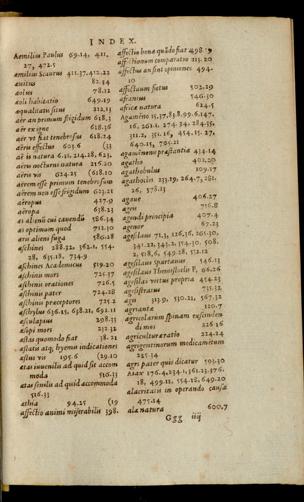 INDEX.
Aemilius Paulus 69.14, 411,
27, 472.5
aemilius Scaurus 411.37, 412.22
auitus 82.14
aolus 78.12
aoli habitatio 649.19
aqualitatis situs 212.13
aër an primum frigidum 618.3
aër ex igne 618.36
aër vt fiat tenebrosus 618.24
aëris effectus 605.6 (33
aëris natura 6.21, 214.28, 623,
aëris nocturni natura 216.20
aëris vis 624.25 (618.10
aërem esse primum tenebrosum
aërem non esse frigidum 623.21
aëropus 427.9
aëropa 638.23
as alienũ cui cauendũ 586.34
as optimum quod 711.30
aris alieni fuga 586.28
aschines 288.22, 362.1, 554.
28, 635.18, 734.9
aschines Academicus 519.20
aschinis mors 725.37
aschinis orationes 726.5
aschinis pater 724.28
aschinis praeceptores 725.2
aschylus 636.15, 638.21, 692.11
asculapius 298.33
asopi mors 232.32
astus quomodo fiat 38.21
astatis atq; hyemis indicationes
astus vis 195.6 (29.10
atas iuuenilis ad quid sit accom
moda 516.33
atas senilis ad quid accommoda
516.33
athia 94.25 (19
affectio animi miserabilis 398.
affectio bona quãdo fiat 498.9
affectionum comparatio 213.20
affectus an sint opiniones 494.
10
affectuum fatus 502.29
afranius 546.30
africa natura 624.5
Agameno 15.37, 83.8, 99.6, 147,
16, 261.1, 274.24, 284.15,
311.2, 351.16, 454.15, 27,
640.15, 705.21
agamemnonis praestantia 434.14
agatho 402.20
agathobulus 109.17
agathocles 233.19, 264.7, 281.
26, 378.13
agaue 406.27
agen 716.8
agendi principia 407.4
agenor 67.23
agesilaus 71.3, 126.36, 265.30,
341.22, 343.2, 374.30, 508.
2, 518.6, 549.28, 552.12
agesilaus Spartanus 546.13
agesilaus Themistoclis F. 66.26
agesilas virtus propria 454.23
agesistratus 735.32
agis 313.9, 530.21, 567.32
agrianta 120.7
agricolarum spinam exscinden
di mos 226.36
agriculturae ratio 224.24
agrigentinorum medicamentum
225.34
agri pater quis dicatur 503.30
AIAX 176.4, 234.1, 361.23, 376.
18, 499.11, 554.18, 649.20
alacritatis in operando causa
475.14
ala natura 600.7
Ggg iiij